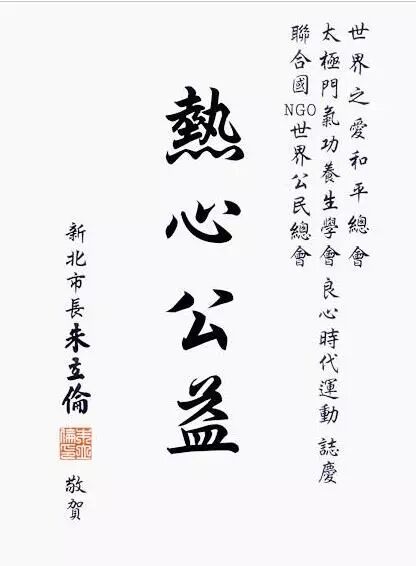 世界之愛和平總會
太極門氣功養生學會 良心時代運動 誌慶
聯合國NGO世界公民總會
熱心公益
新北市長朱立倫 敬賀
朱立倫印